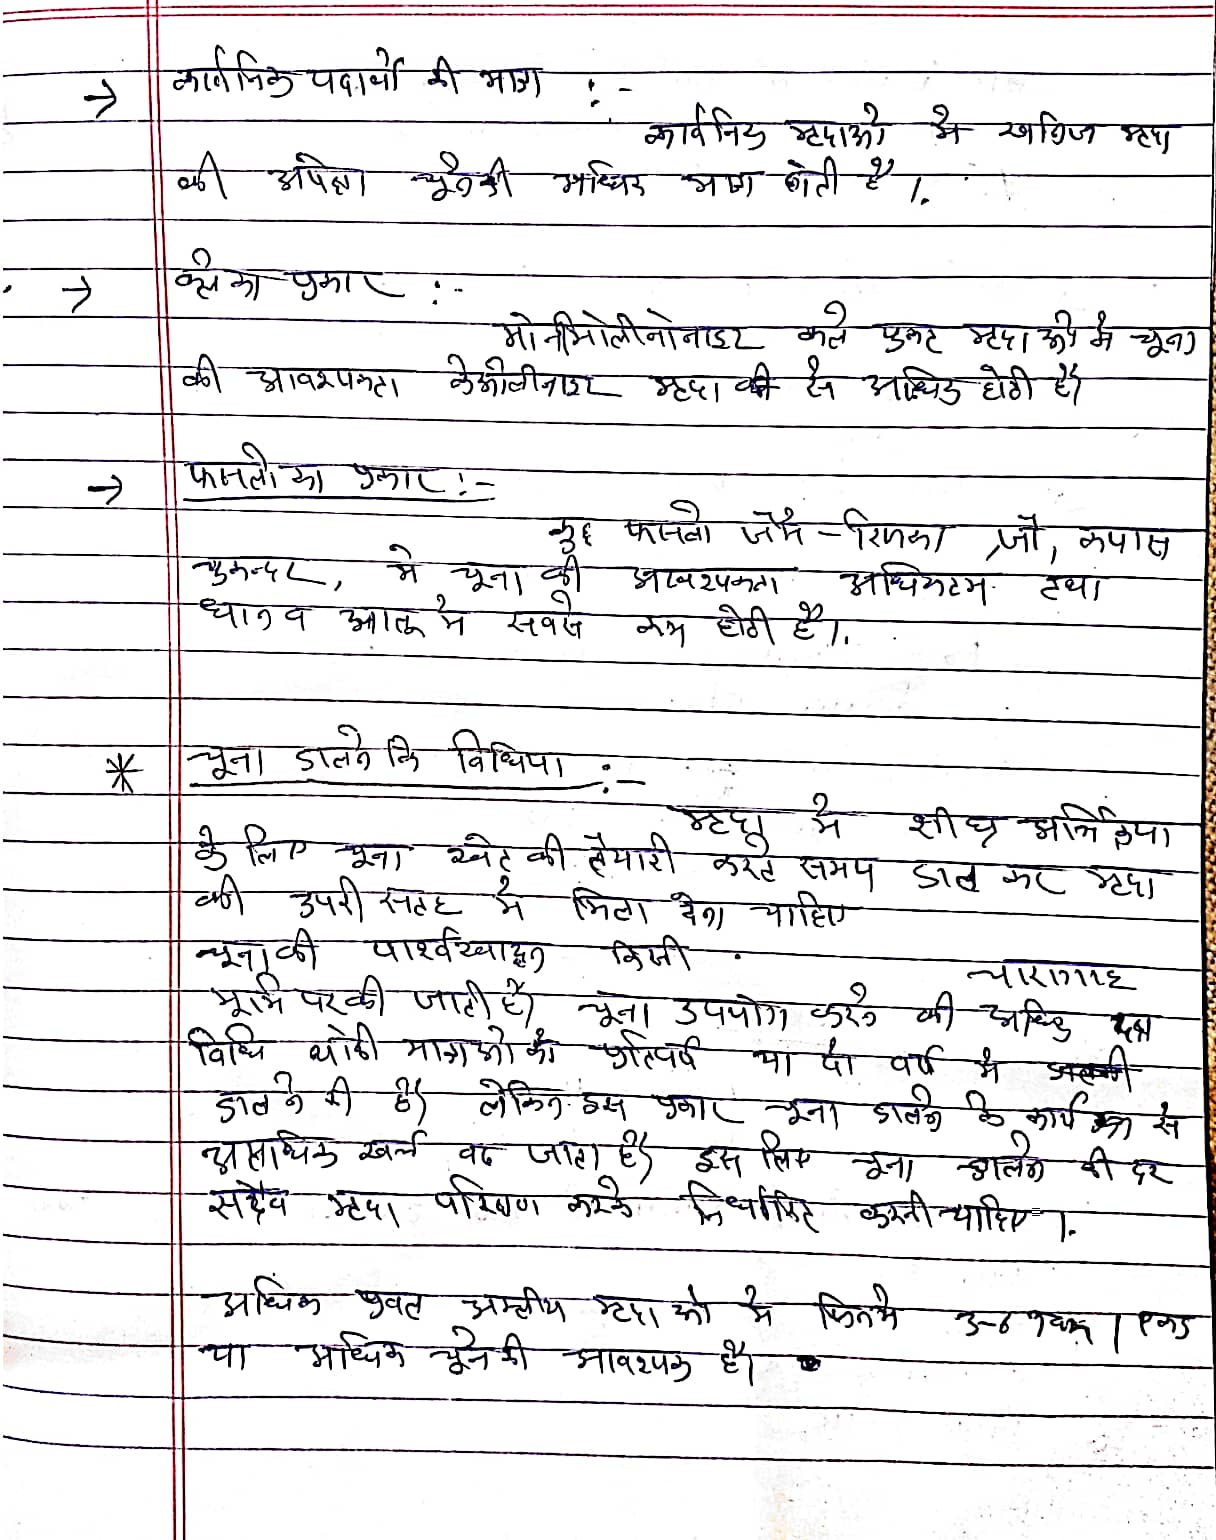 → कार्बनिक पदार्थो की मात्रा :-
कार्वनिक मृदाओ मे खनिज मृदा
की अपेक्षा चूने की अधिक मात्रा होती है ।.
→ क्ले का प्रकार :-
मोन्टीमोलीनोनाइट क्ले युक्त मृदाओ मे चूना
की आवश्यकता केओलीनाइट मृदा की से अधिक होती है।
→ फसलो का प्रकार :-
कुछ फसलो जैसे - रिजका, जौ, कपास
चुकन्दर, मे चूना की आवश्यकता अधिकतम तथा
धान व आलू मे सबसे कम होती है ।.
* चूना डालने कि विधिया :-
मृदा मे शीघ्र अभिक्रिया
के लिए चूना खेत की तैयारी करते समय डाल कर मृदा
की उपरी सतह मे मिला देना चाहिए
चूना की किसी चारागाह
भूमि पर की जाती है। चूना उपयोग करने की अधिक दक्ष
विधि थोडी मात्राओ को प्रतिवर्ष या दो वर्ष मे
डालने की है। लेकिन इस प्रकार चूना डालने के कार्य से
अत्याधिक खर्च बढ जाता है। इस लिए चूना डालने की दर
सदैव मृदा परिक्षण करके निर्धारित करनी चाहिए ।.
अधिक प्रबल अम्लीय मृदाओ मे जिनमे 3-4 / एकड
या अधिक चूने की आवश्यक है।